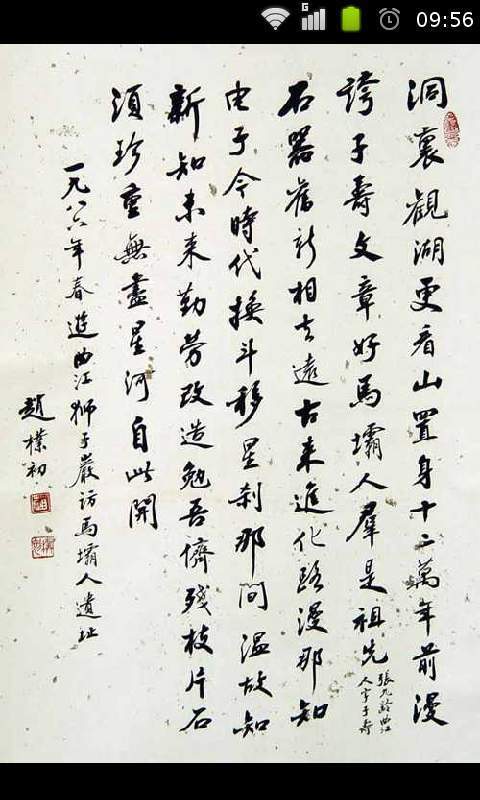 09:56
洞裏觀湖更看山置身十二萬年前漫
誇子壽文章好馬壩人羣是祖先
張九齡曲江
人字子壽
石器舊新相去遠古来進化路漫那知
电子今時代換斗移星刹那间温故知
新知未来勤劳改造勉吾儕殘枝片石
須珍重無盡星河自此開
一九八六年春遊曲江狮子巖访馬壩人遺址
趙樸初